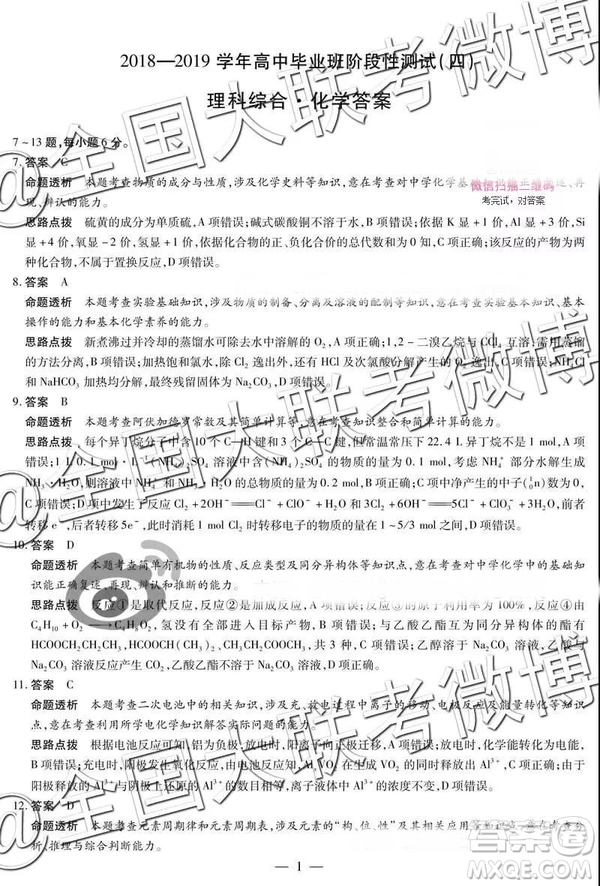 2018—2019 学年高中毕业班阶段性测试(四)
理科综合·化学答案
7~13题,每小题6分。
7. 答案 C
命题透析 本题考查物质的成分与性质,涉及化学史料等知识,意在考查对中学化学基
现、辨认的能力。
微信扫描二维码
考完试,对答案
思路点拨 硫黄的成分为单质硫,A项错误;碱式碳酸铜不溶于水,B项错误;依据 K 显+1价,Al 显+3价,Si
显+4价,氧显-2价,氢显+1价,依据化合物中化合价的总代数和为0知,C项正确;该反应的产物为两
种化合物,不属于置换反应,D项错误。
8. 答案 A
命题透析 本题考查实验基础知识,涉及物质的制备、分离及溶液的配制等知识,意在考查化学实验的基本
操作的能力和基本化学素养的能力。
思路点拨 新煮沸过并冷却的蒸馏水可除去水中溶解的 O₂,A项正确;1,2-二溴乙烷与 CCl₄ 互溶,需用蒸馏
的方法分离,B项错误;加热饱和氯水,除 Cl₂ 逸出外,还有 HCl 及次氯酸分解产生的 O₂ 逸出,C项错误;NH₄Cl
和 NaHCO₃ 加热混合物时,最终残留固体为 Na₂CO₃,D项错误。
9. 答案 B
命题透析 本题考查阿伏加德罗常数及其简单计算等,意在考查知识整合和简单计算的能力。
思路点拨 每个异丁烷分子中含 10 个 C—H 键和 3 个 C—C 键,但常温常压下 22.4 L 异丁烷不是 1 mol,A项
错误;1 L 0.1 mol·L⁻¹(NH₄)₂SO₄ 溶液中含(NH₄)₂SO₄ 的物质的量为 0.1 mol,考虑 NH₄⁺ 部分水解生成
NH₃·H₂O,则溶液中 NH₄⁺ 和 NH₃·H₂O 的物质的量之和为 0.2 mol,B项正确;中子(¹₀n)质子数为 0,
C项错误;D项中发生了反应 Cl₂+2OH⁻══Cl⁻+ClO⁻+H₂O 或 3Cl₂+6OH⁻══5Cl⁻+ClO₃⁻+3H₂O,前者
转移 e⁻,后者转移 5e⁻,此时消耗 1 mol Cl₂ 时转移电子的物质的量为 1~5/3 mol 之间,D项错误。
10. 答案 D
命题透析 本题考查简单有机物的性质、反应类型及同分异构体等知识点,意在考查对中学化学中的基础知
识能正确复述、再现、辨认和推断的能力。
思路点拨 反应①是取代反应,反应②是加成反应,A项错误;反应③的原子利用率为 100%,反应④由
C₄H₁₀+O₂→C₄H₈O₂,氢没有全部进入目标产物,B项错误;与乙酸乙酯互为同分异构体的酯有
HCOOCH₂CH₂CH₃、HCOOCH(CH₃)₂、CH₃CH₂COOCH₃ 三种,C项错误;乙醇溶于 Na₂CO₃ 溶液,乙酸与
Na₂CO₃ 溶液反应产生 CO₂,乙酸乙酯不溶于 Na₂CO₃ 溶液,D项正确。
11. 答案 C
命题透析 本题考查二次电池中的相关知识,涉及充、放电过程中离子的移动、电极反应式及电极反应等,意
在考查利用所学电化学知识解答实际问题的能力。
思路点拨 根据电池反应可知:铝为负极,放电时,阳离子向正极迁移,A项错误;放电时,化学能转化为电能,
B项错误;充电时,阳极发生氧化反应,由电池反应知,Al 发生氧化反应生成 Al³⁺,C项正确;充电时,由于
阳极释放的 Al³⁺ 与阴极上还原的 Al³⁺ 的数目相等,离子液体中 Al³⁺ 的浓度不变,D项错误。
12. 答案 D
命题透析 本题考查元素周期律和元素周期表知识,涉及元素的“构、位、性”及其之间的关系,意在考查分
析、推理与综合判断能力。
— 1 —
@全国大联考微博
@全国大联考微博
@全国大联考微博
答案圈